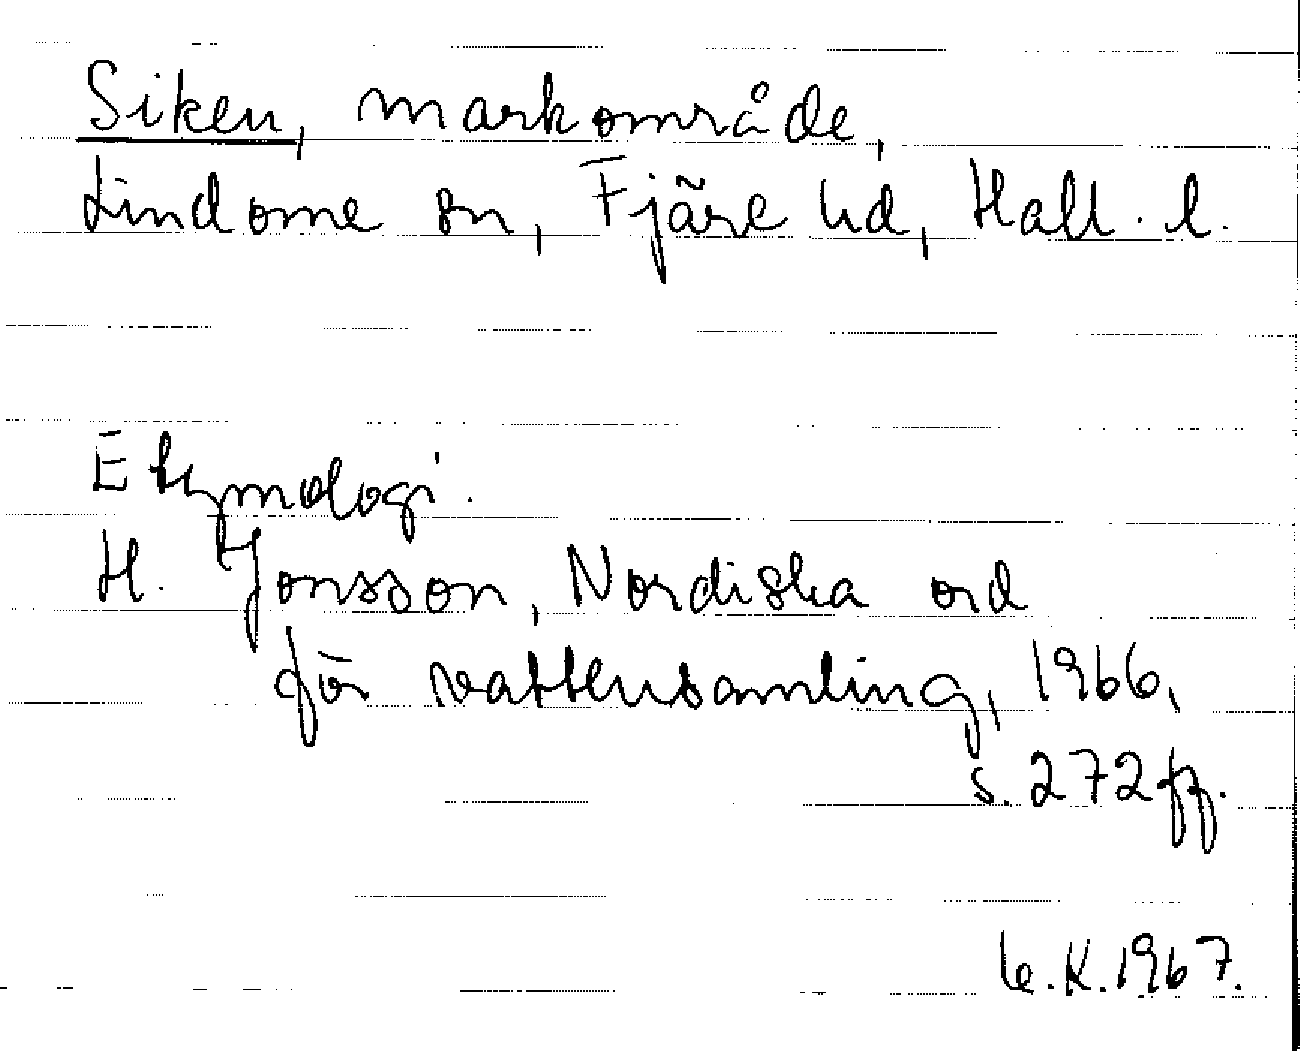 Siken, markområde,
Lindome sn, Fjäre hd, Hall. l.
Etymologi.
H. Jonsson, Nordiska ord
för vattensamling, 1966,
s. 272 ff.
K. 1967.